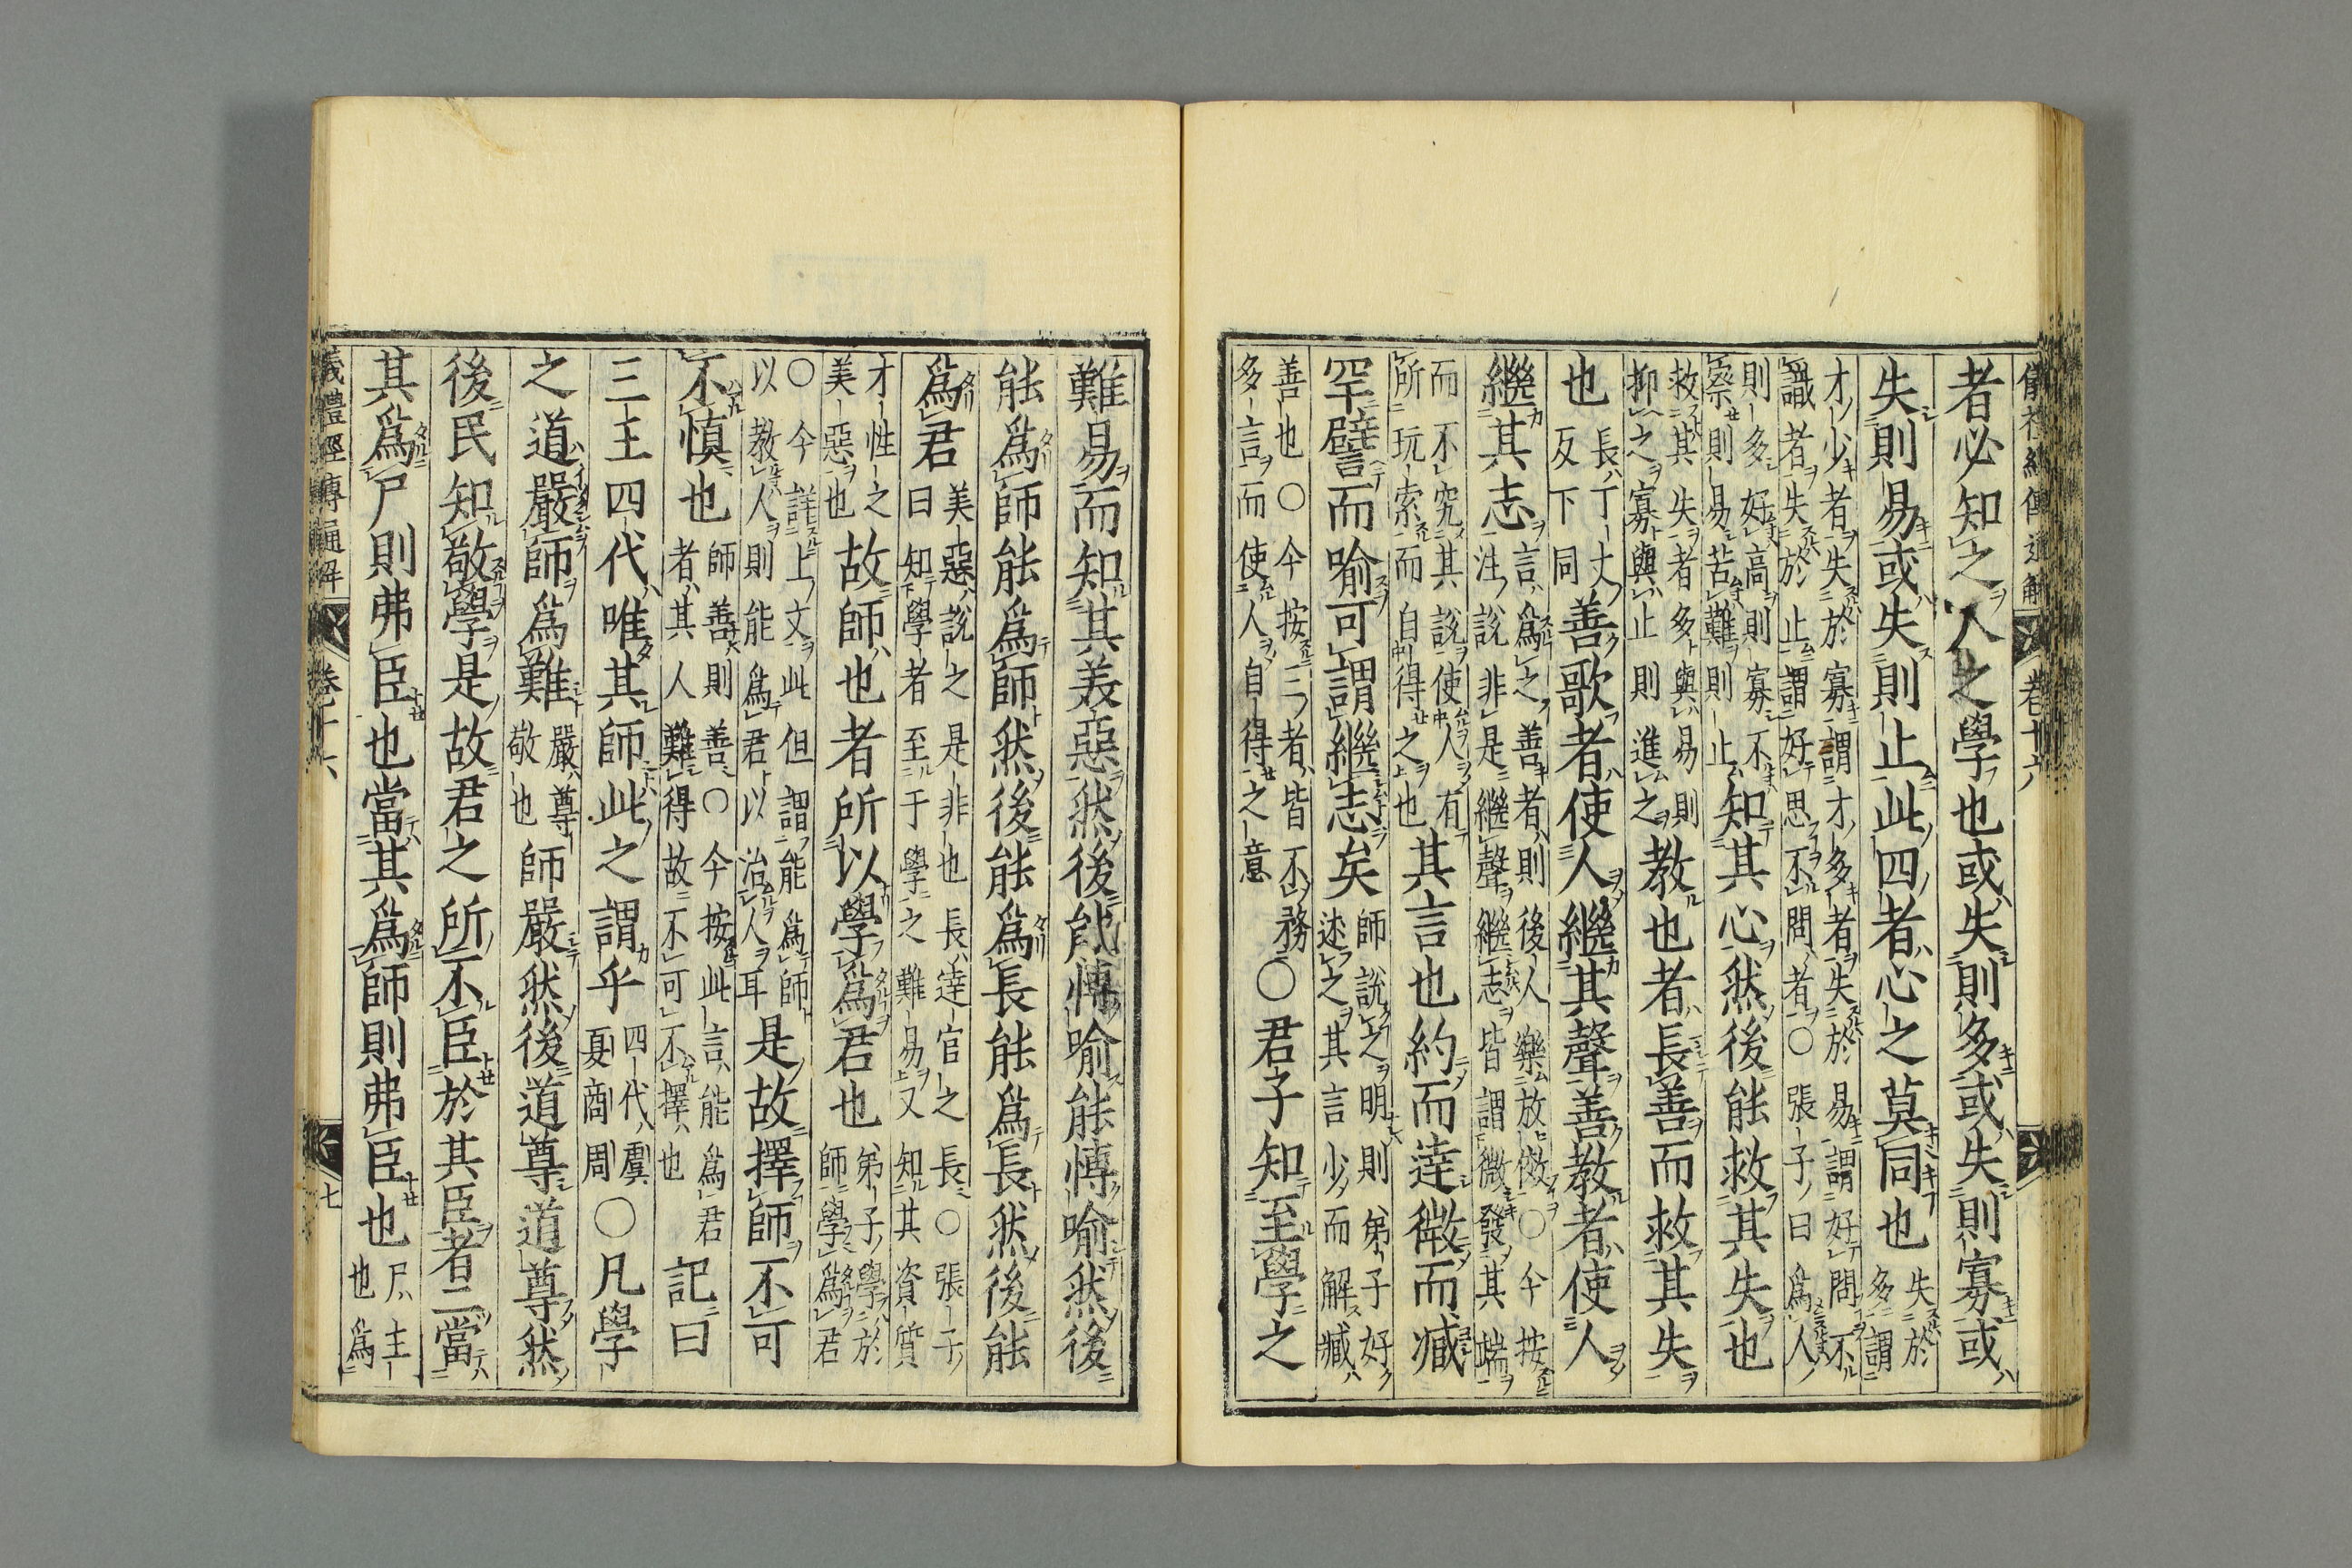 儀禮經傳通解 卷十六
者必知之人之學也或失則多或失則寡或
失則易或失則止此四者心之莫同也失於
多謂
才少者失於寡謂才多者失於易謂好問不
識者失於止謂好思不問者○張子曰爲人
則多好高則寡不
察則易苦難則止知其心然後能救其失也
救其失者多與易則
抑之寡與止則進之教也者長善而救其失
也長丁丈
反下同善歌者使人繼其聲善教者使人
繼其志言爲之善者則後人樂放傚○今按
注說非是繼聲繼志皆謂微發其端
而不究其說使人有
所玩索而自得之也其言也約而達微而臧
罕譬而喻可謂繼志矣師說之明則弟子好
述之其言少而解臧
善也○今按三者皆不務
多言而使人自得之意○君子知至學之
難易而知其美惡然後能博喻能博喻然後
能爲師能爲師然後能爲長能爲長然後能
爲君美惡說之是非也長達官之長○張子
曰知學者至于學之難易又知其資質
才性之
美惡也故師也者所以學爲君也弟子學於
師學爲君
○今詳上文此但謂能爲師
以教人則能爲君以治人耳是故擇師不可
不慎也師善則善○今按此言能爲君
者其人難得故不可不擇也記曰
三王四代唯其師此之謂乎四代虞
夏商周○凡學
之道嚴師爲難嚴尊
敬也師嚴然後道尊道尊然
後民知敬學是故君之所不臣於其臣者二當
其爲尸則弗臣也當其爲師則弗臣也尸主
也爲
儀禮經傳通解 卷十六 七